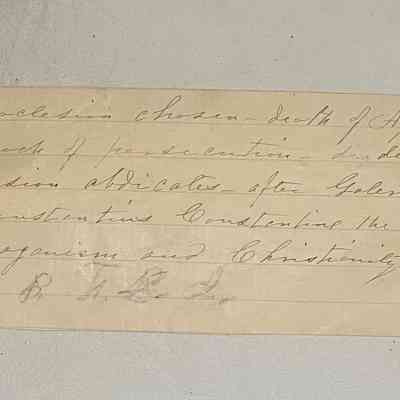 oclesian chosen - death of A
ock of persecution -
sion abdicates - after Galer
onstantius Constantine the
aganism and Christianity